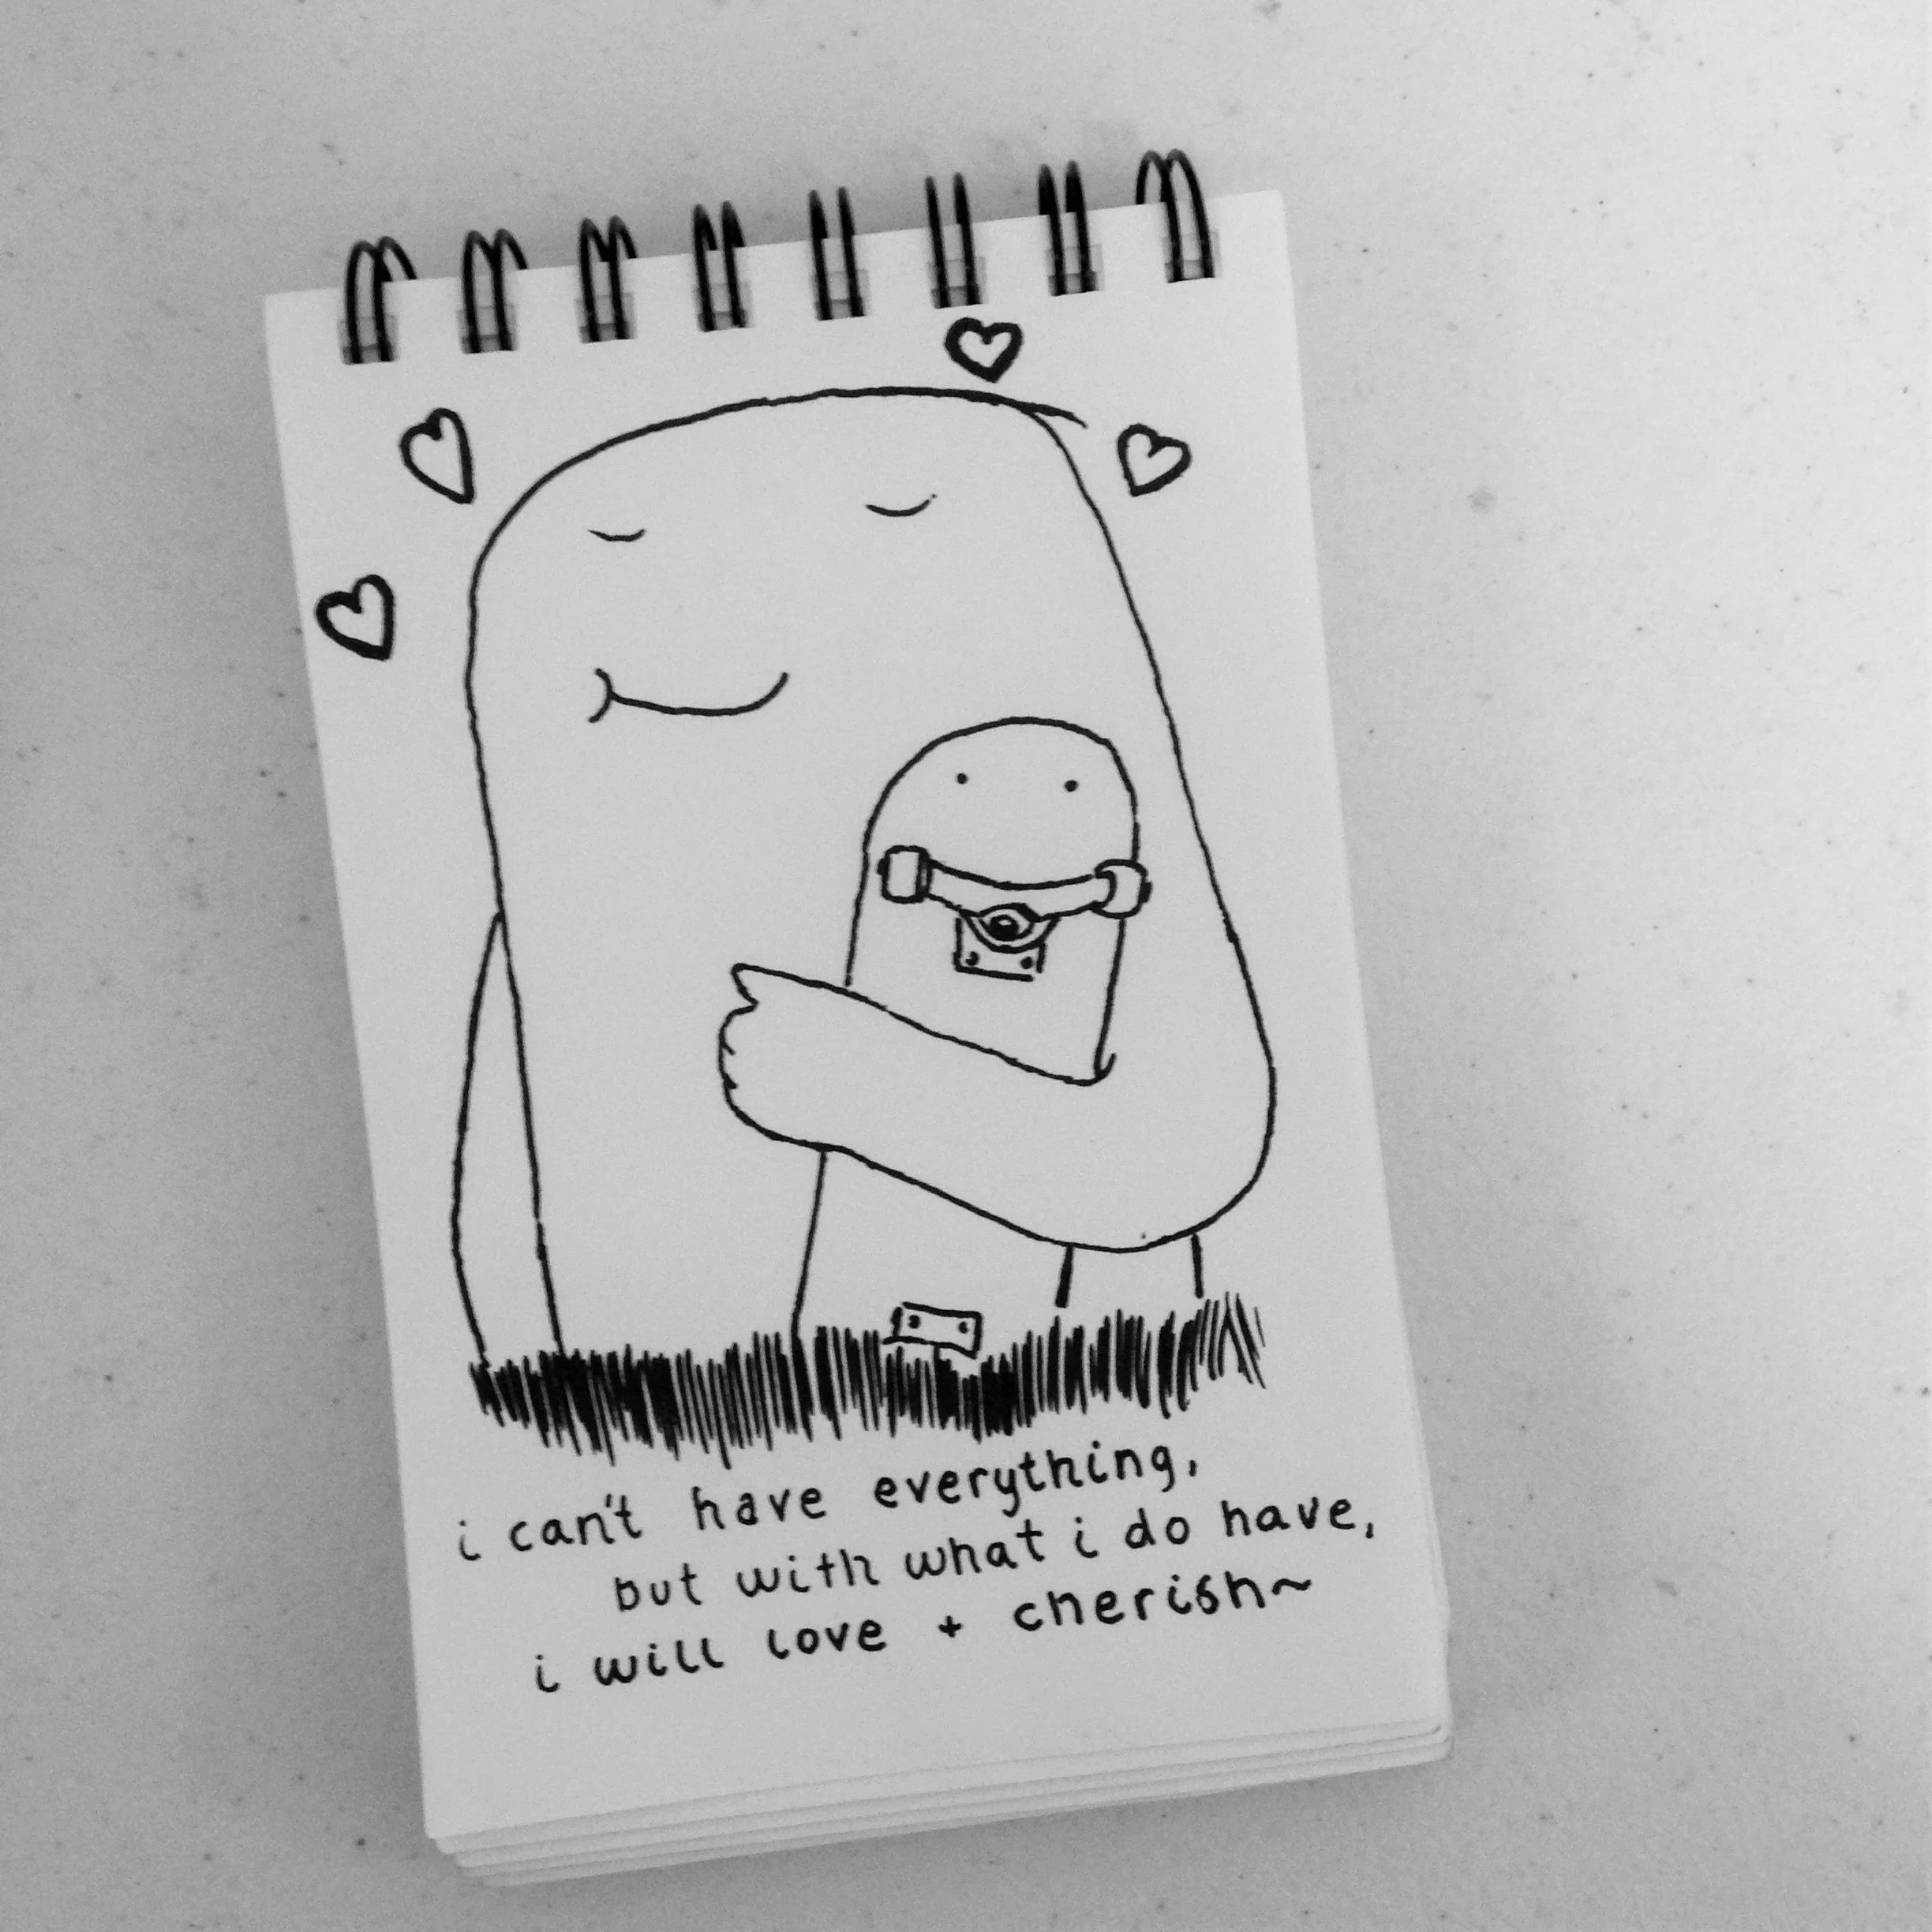 i can't have everything,
but with what i do have,
i will love + cherish~